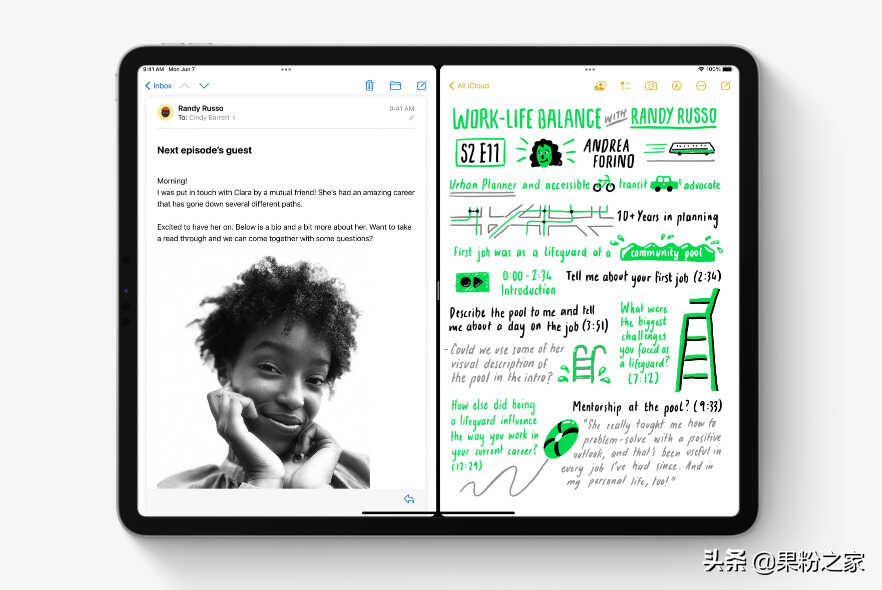 9:41 AM Mon Jun 7
100%
Inbox
Randy Russo
9:41 AM
To: Cindy Barrett
Next episode's guest
Morning!
I was put in touch with Clara by a mutual friend! She's had an amazing career
that has gone down several different paths.
Excited to have her on. Below is a bio and a bit more about her. Want to take
a read through and we can come together with some questions?
All iCloud
WORK-LIFE BALANCE WITH RANDY RUSSO
S2 E11
ANDREA
FORINO
Urban Planner and accessible transit advocate
10+ Years in planning
First job was as a lifeguard of a community pool
0:00 - 2:34
Introduction
Tell me about your first job (2:34)
Describe the pool to me and tell
me about a day on the job (3:51)
- Could we use some of her
visual description of
the pool in the intro?
What were
the biggest
challenges
you faced as
a lifeguard?
(7:12)
How else did being
a lifeguard influence
the way you work in
your current career?
(12:29)
Mentorship at the pool? (9:33)
"She really taught me how to
problem-solve with a positive
outlook, and that's been useful in
every job I've had since. And in
my personal life, too!"
头条 @果粉之家